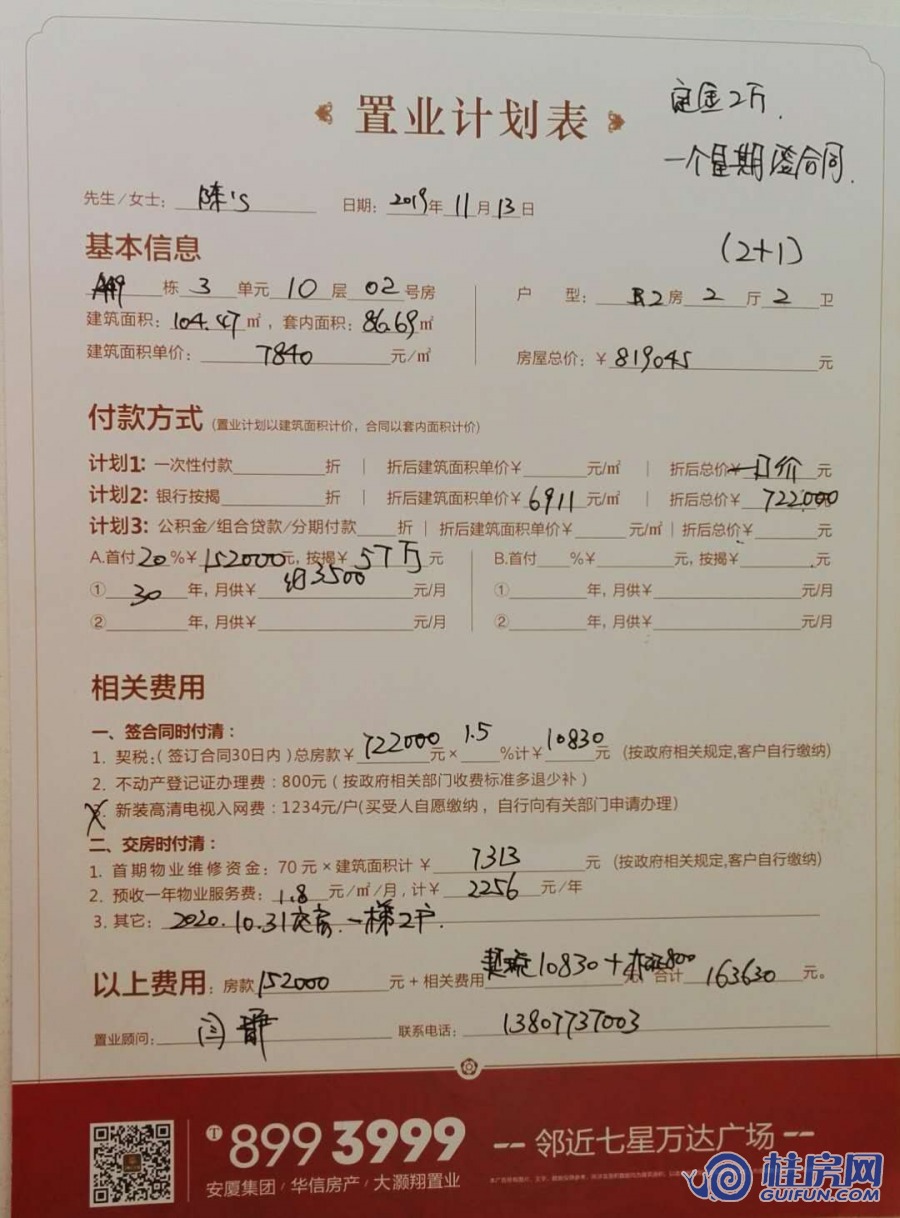 置业计划表
定金2万.
一个星期签合同.
先生/女士: 陈's 日期: 2019年11月13日
基本信息 (2+1)
A49栋 3 单元 10 层 02 号房 户 型: 2房 2 厅 2 卫
建筑面积: 104.47㎡, 套内面积: 86.69㎡
建筑面积单价: 7840 元/㎡ 房屋总价: ¥ 819045 元
付款方式 (置业计划以建筑面积计价, 合同以套内面积计价)
计划1: 一次性付款 折 | 折后建筑面积单价¥ 元/㎡ | 折后总价¥一口价 元
计划2: 银行按揭 折 | 折后建筑面积单价¥6911元/㎡ | 折后总价¥ 722000
计划3: 公积金/组合贷款/分期付款 折 | 折后建筑面积单价¥ 元/㎡ | 折后总价¥ 元
A.首付20%¥152000元, 按揭¥57万元 B.首付 %¥ 元, 按揭¥ 元
① 30 年, 月供¥ 约3500 元/月 ① 年, 月供¥ 元/月
② 年, 月供¥ 元/月 ② 年, 月供¥ 元/月
相关费用
一、签合同时付清:
1. 契税:(签订合同30日内)总房款¥722000元×1.5%计¥10830元 (按政府相关规定,客户自行缴纳)
2. 不动产登记证办理费: 800元 (按政府相关部门收费标准多退少补)
3. 新装高清电视入网费: 1234元/户(买受人自愿缴纳, 自行向有关部门申请办理)
二、交房时付清:
1. 首期物业维修资金: 70元×建筑面积计 ¥ 7313 元 (按政府相关规定,客户自行缴纳)
2. 预收一年物业服务费: 1.8 元/㎡/月, 计¥ 2256 元/年
3. 其它: 2020.10.31交房.一梯2户.
以上费用: 房款152000 元+相关费用 契税10830+办证800元, 合计 163630 元。
置业顾问: 闫 联系电话: 13807737003
T 899 3999 -- 邻近七星万达广场 --
安厦集团 / 华信房产 / 大灏翔置业
桂房网
GUIFUN.COM